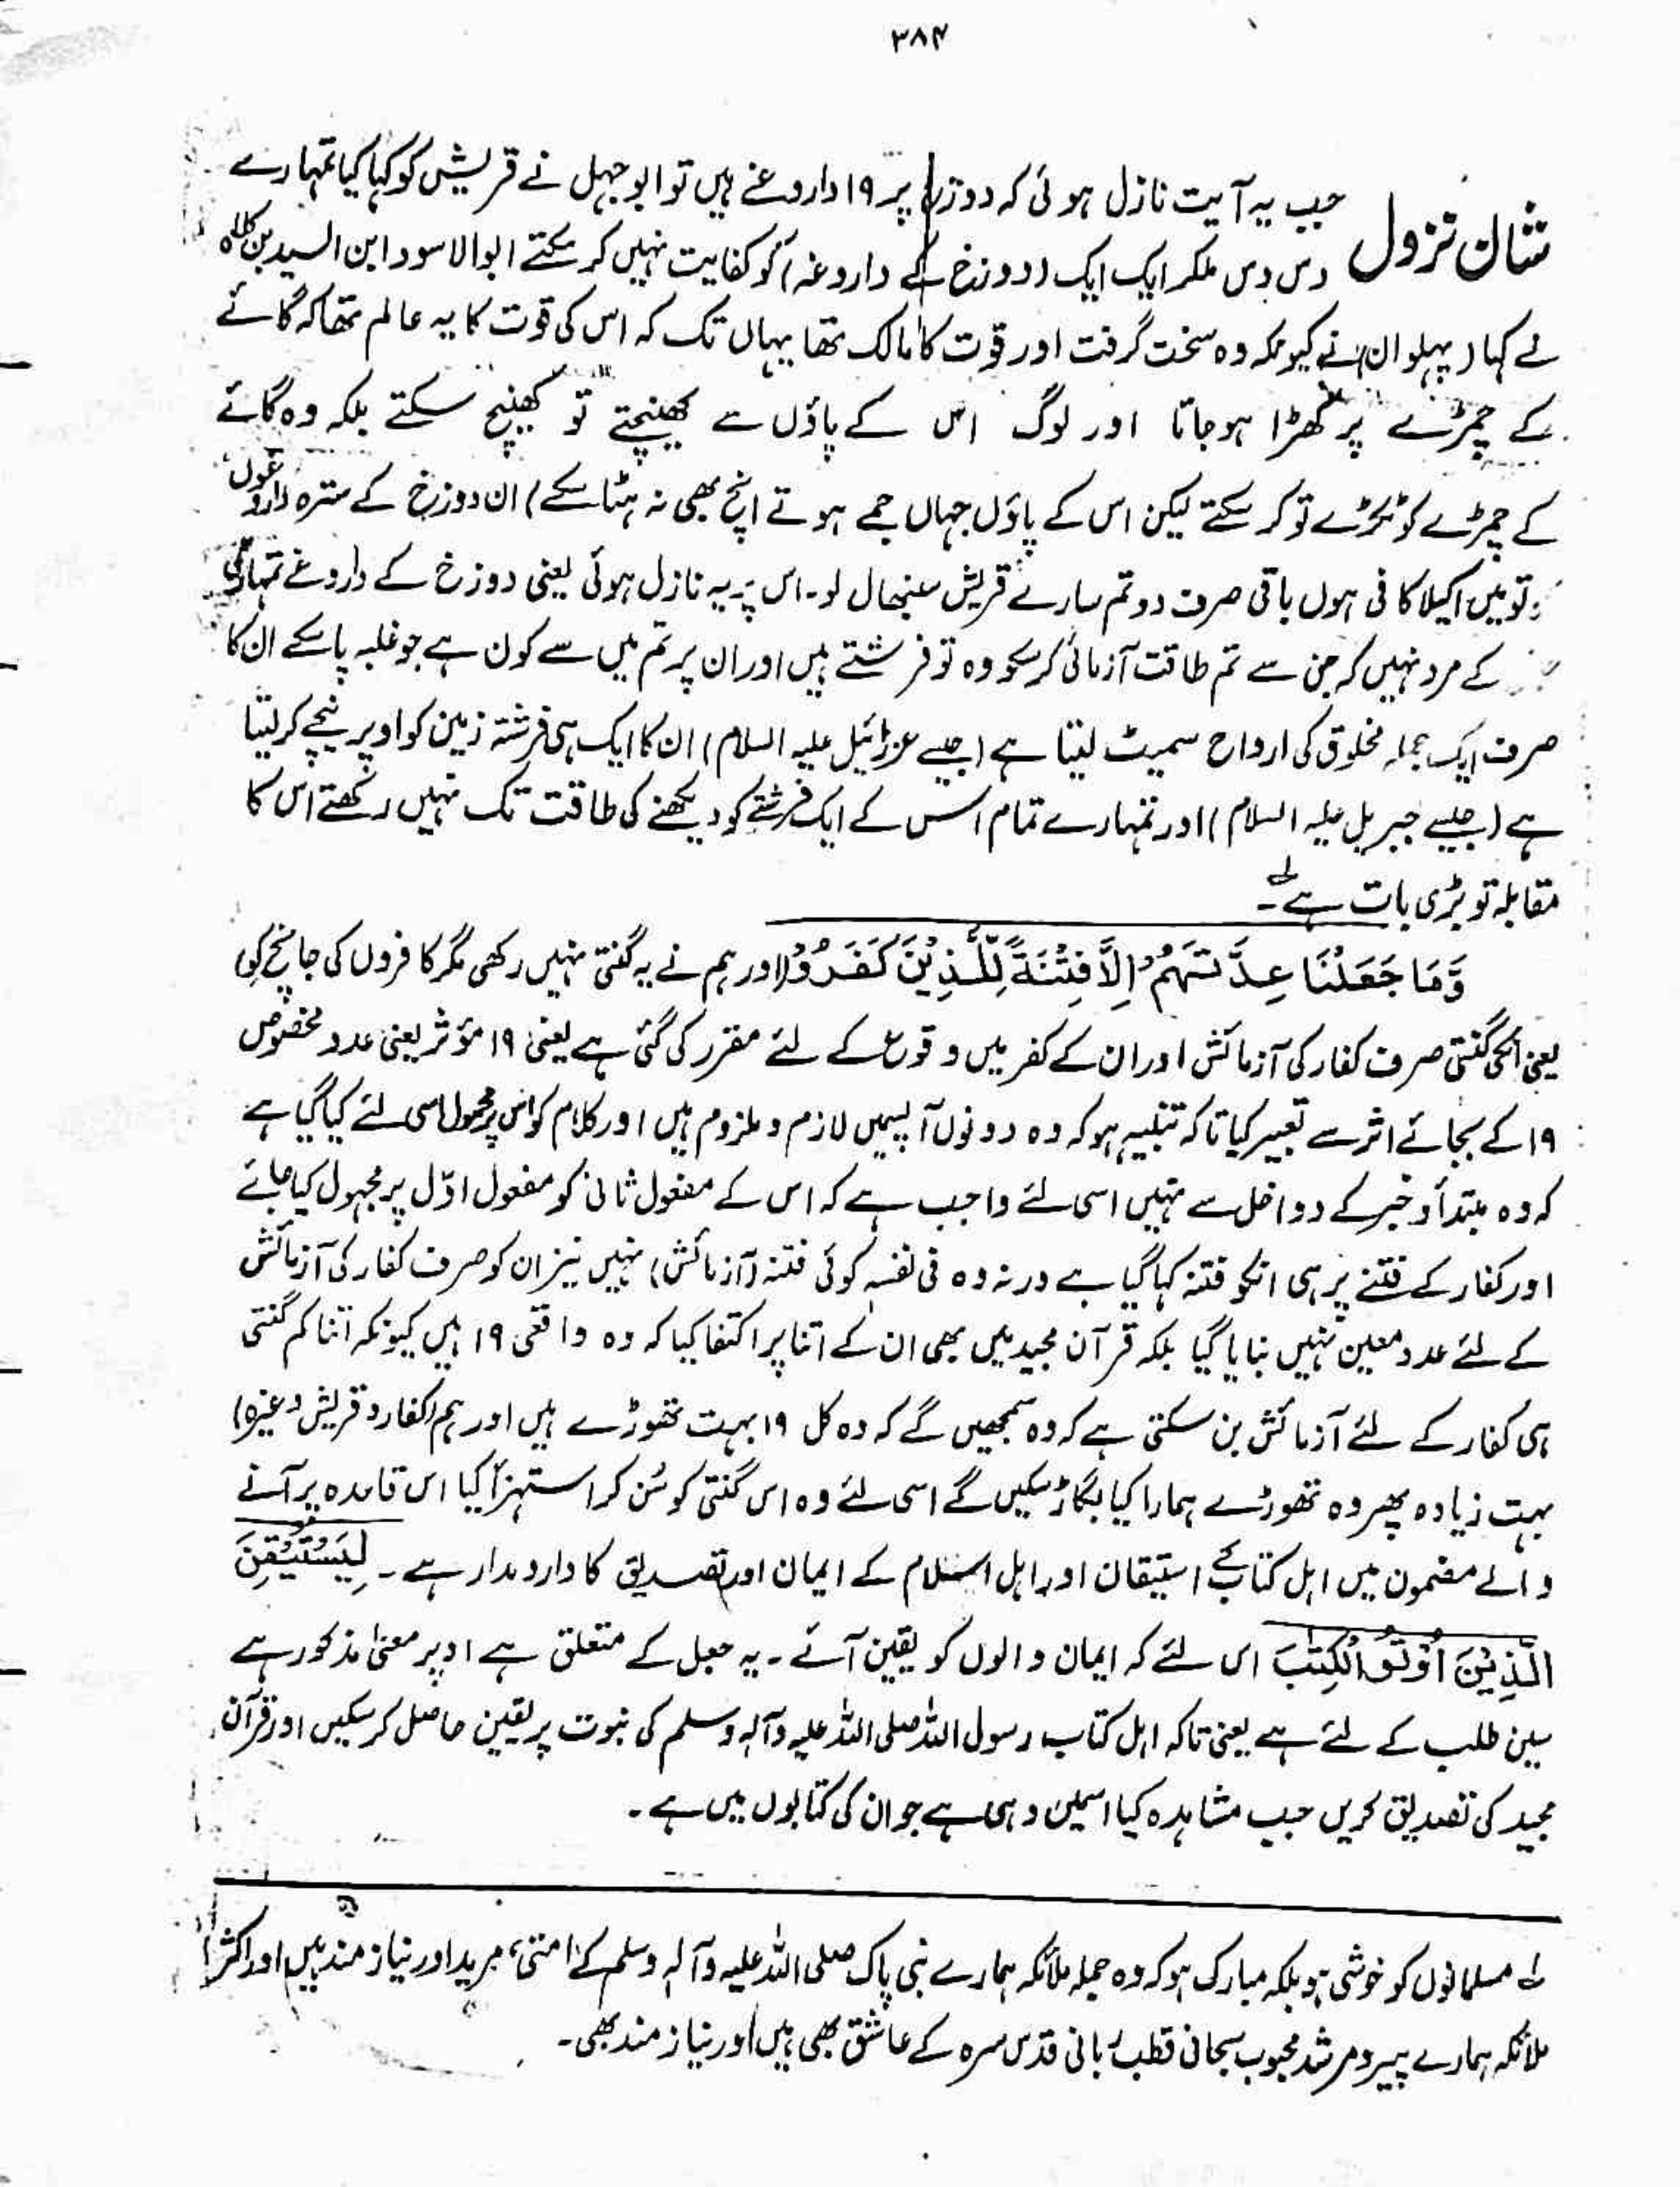 ۳۸۴
شان نزول جب یہ آیت نازل ہوئی کہ دوزخ پر ۱۹ داروغے ہیں تو ابوجہل نے قریش کو کہا کیا تمہارے
دس دس ملکر ایک ایک (دوزخ کے داروغہ) کو کفایت نہیں کر سکتے ابوالاسود ابن السید بن کلدہ
نے کہا (پہلوان) نے کیونکہ وہ سخت گرفت اور قوت کا مالک تھا یہاں تک کہ اس کی قوت کا یہ عالم تھا کہ گائے
کے چمڑے پر کھڑا ہو جاتا اور لوگ اس کے پاؤں سے کھینچتے تو کھینچ سکتے بلکہ وہ گائے
کے چمڑے کو ٹکڑے تو کر سکتے لیکن اس کے پاؤں جہاں جمے ہوتے انچ بھی نہ ہٹا سکے) ان دوزخ کے سترہ داروغوں
تو میں اکیلا کافی ہوں باقی صرف دو تم سارے قریش سنبھال لو۔ اس پر یہ نازل ہوئی یعنی دوزخ کے داروغے تمہاری
کے مرد نہیں کہ جن سے تم طاقت آزمائی کر سکو وہ تو فرشتے ہیں اور ان پر تم میں سے کون ہے جو غلبہ پا سکے ان کا
صرف ایک جملہ مخلوق کی ارواح سمیٹ لیتا ہے (جیسے عزرائیل علیہ السلام) ان کا ایک ہی فرشتہ زمین کو اوپر نیچے کر لیتا
ہے (جیسے جبریل علیہ السلام) اور تمہارے تمام اس کے ایک فرشتے کو دیکھنے کی طاقت تک نہیں رکھتے اس کا
مقابلہ تو بڑی بات ہے لہ۔
وَّمَا جَعَلْنَا عِدَّتَهُمْ اِلَّا فِتْنَةً لِّلَّذِيْنَ كَفَرُوْا (اور ہم نے یہ گنتی نہیں رکھی مگر کافروں کی جانچ کو)
یعنی انکی گنتی صرف کفار کی آزمائش اور ان کے کفر میں وقوع کے لئے مقرر کی گئی ہے یعنی ۱۹ مؤثر یعنی عدد مخصوص
۱۹ کے بجائے اثر سے تعبیر کیا تاکہ تنبیہ ہو کہ وہ دونوں آپسمیں لازم و ملزوم ہیں اور کلام کو اس پر محمول اسی لئے کیا گیا ہے
کہ وہ مبتدأ و خبر کے دواخل سے نہیں اسی لئے واجب ہے کہ اس کے مفعول ثانی کو مفعول اوّل پر مجہول کیا جائے
اور کفار کے فتنے پر ہی انکو فتنہ کہا گیا ہے ورنہ وہ فی نفسہٖ کوئی فتنہ (آزمائش) نہیں نیز ان کو صرف کفار کی آزمائش
کے لئے عدد معین نہیں بنایا گیا بلکہ قرآن مجید میں بھی ان کے اتنا پر اکتفا کیا کہ وہ واقعی ۱۹ ہیں کیونکہ اتنا کم گنتی
ہی کفار کے لئے آزمائش بن سکتی ہے کہ وہ سمجھیں گے کہ وہ کل ۱۹ بہت تھوڑے ہیں اور ہم (کفار و قریش وغیرہ)
بہت زیادہ پھر وہ تھوڑے ہمارا کیا بگاڑ سکیں گے اسی لئے وہ اس گنتی کو سُن کر استہزأ کیا اس قاعدہ پر آنے
والے مضمون میں اہل کتاب کے استیقان اور اہل اسلام کے ایمان اور تصدیق کا دارومدار ہے۔ لِيَسْتَيْقِنَ
الَّذِيْنَ اُوْتُوا الْكِتٰبَ اس لئے کہ ایمان والوں کو یقین آئے۔ یہ جعل کے متعلق ہے اوپر معنیٰ مذکور ہے
سین طلب کے لئے ہے یعنی تاکہ اہل کتاب رسول اللہ صلی اللہ علیہ وآلہ وسلم کی نبوت پر یقین حاصل کر سکیں اور قرآن
مجید کی تصدیق کریں جب مشاہدہ کیا اسمیں وہی ہے جو ان کی کتابوں میں ہے۔
لہ مسلمانوں کو خوشی ہو بلکہ مبارک ہو کہ وہ جملہ ملائکہ ہمارے نبی پاک صلی اللہ علیہ وآلہ وسلم کے امتی، مرید اور نیاز مند ہیں اور اکثر
ملائکہ ہمارے پیر و مرشد محبوب سبحانی قطب ربانی قدس سرہ کے عاشق بھی ہیں اور نیاز مند بھی۔